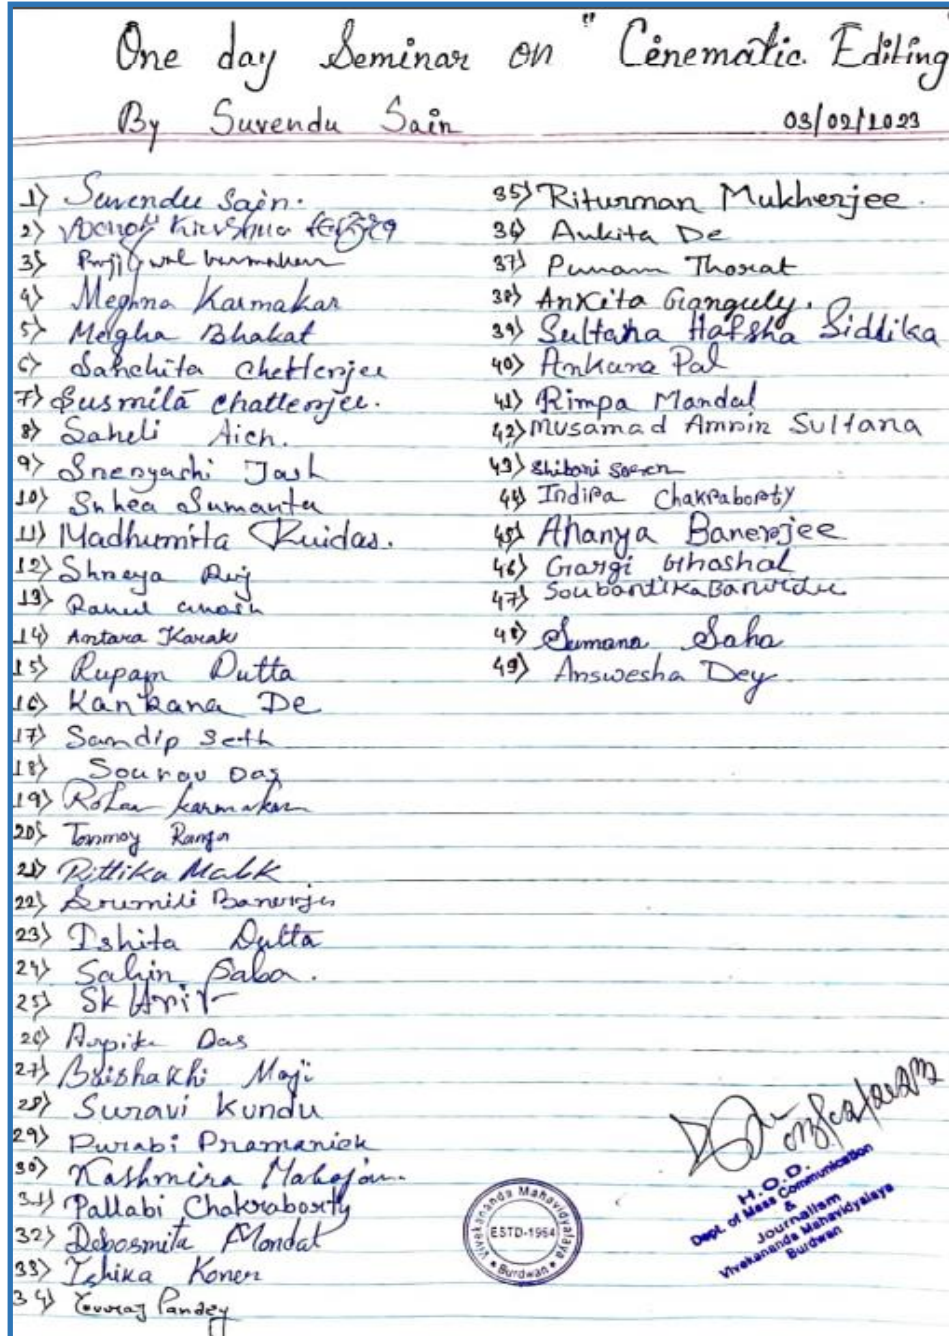 One day Seminar on "Cenematic Editing"
By Suvendu Sain 03/02/2023
1) Suvendu Sain.
2)
3)
4) Meghna Karmakar
5) Megha Bhakat
6) Sanchita Chetterjee
7) Susmita Chatterjee.
8) Saheli Aich.
9) Snenyashi Jash
10) Snhea Sumanta
11) Madhumita Ruidas.
12) Shreya Ruj
13) Rahul Ghosh
14) Antara Karak
15) Rupam Dutta
16) Kankana De
17) Sandip Seth
18) Sourav Das
19) Rohan Karmakar
20) Tanmoy
21) Rittika Malik
22) Srumili Banerjee
23) Ishita Dutta
24) Sahin Saba.
25) SK
26) Arpita Das
27) Baishakhi Maji
28) Suravi Kundu
29) Purabi Pramanick
30) Kashmira
31) Pallabi Chakraborty
32) Debosmita Mondal
33) Ishika Koner
34) Pandey
35) Riturman Mukherjee.
36) Ankita De
37) Punam Thorat
38) Ankita Ganguly.
39) Sultana Hafsha Siddika
40) Ankana Pal
41) Rimpa Mandal
42) Musamad Amrin Sultana
43) Shibani Soren
44) Indira Chakraborty
45) Ahanya Banerjee
46) Gargi Ghoshal
47) Soubantika
48) Sumana Saha
49) Answesha Dey
Vivekananda Mahavidyalaya
ESTD-1964
Burdwan
03/02/2023
H.O.D.
Dept. of Mass Communication
&
Journalism
Vivekananda Mahavidyalaya
Burdwan